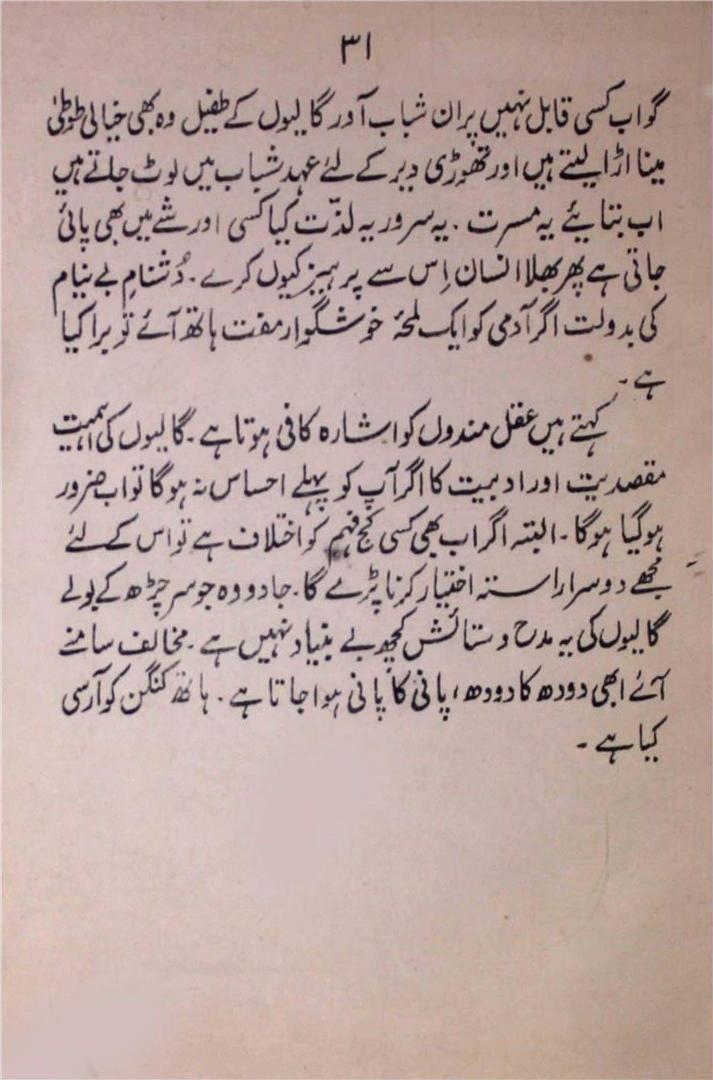 ۳۱
گو اب کسی قابل نہیں پر ان شباب آور گالیوں کے طفیل وہ بھی خیالی طوطی
مینا اڑا لیتے ہیں اور تھوڑی دیر کے لئے عہد شباب میں لوٹ جاتے ہیں
اب بتائیے یہ مسرت ۔ یہ سرور یہ لذّت کیا کسی اور شے میں بھی پائی
جاتی ہے پھر بھلا انسان اِس سے پرہیز کیوں کرے ۔ دُشنامِ بے نیام
کی بدولت اگر آدمی کو ایک لمحۂ خوشگوار مفت ہاتھ آئے تو برا کیا
ہے ۔
کہتے ہیں عقل مندوں کو اشارہ کافی ہوتا ہے ۔ گالیوں کی اہمیت
مقصدیت اور ادبیت کا اگر آپ کو پہلے احساس نہ ہوگا تو اب ضرور
ہوگیا ہوگا ۔ البتہ اگر اب بھی کسی کج فہم کو اختلاف ہے تو اس کے لئے
مجھے دوسرا راستہ اختیار کرنا پڑے گا ۔ جادو وہ جو سر چڑھ کے بولے
گالیوں کی یہ مدح و ستائش کچھ بے بنیاد نہیں ہے ۔ مخالف سامنے
آئے ابھی دودھ کا دودھ ، پانی کا پانی ہوا جاتا ہے ۔ ہاتھ کنگن کو آرسی
کیا ہے ۔